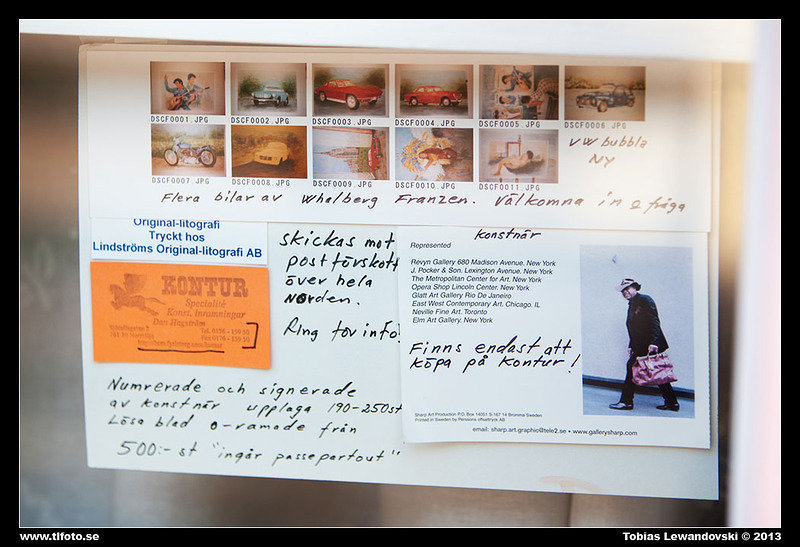 DSCF0001.JPG DSCF0002.JPG DSCF0003.JPG DSCF0004.JPG DSCF0005.JPG DSCF0006.JPG
DSCF0007.JPG DSCF0008.JPG DSCF0009.JPG DSCF0010.JPG DSCF0011.JPG
VW bubbla
NY
Flera bilar av Whalberg Franzen. Välkomna in o fråga
Original-litografi
Tryckt hos
Lindströms Original-litografi AB
KONTUR
Specialité
Konst, inramningar
Dan Hagström
Tel. 0176 - 159 50
Fax 0176 - 159 50
skickas mot
postförskott
över hela
Norden.
Ring för info!
konstnär
Represented
Revyn Gallery 680 Madison Avenue. New York
J. Pocker & Son. Lexington Avenue. New York
The Metropolitan Center for Art. New York
Opera Shop Lincoln Center. New York
Glatt Art Gallery Rio De Janeiro
East West Contemporary Art. Chicago. IL
Neville Fine Art. Toronto
Elm Art Gallery. New York
Finns endast att
köpa på Kontur!
Sharp Art Production P.O. Box 14051 S-167 14 Bromma Sweden
Printed in Sweden by Perssons offsettryck AB
email: sharp.art.graphic@tele2.se • www.gallerysharp.com
Numrerade och signerade
av konstnär upplaga 190-250st
Lösa blad o-ramade från
500:- st "ingår passepartout"
www.tlfoto.se
Tobias Lewandovski © 2013